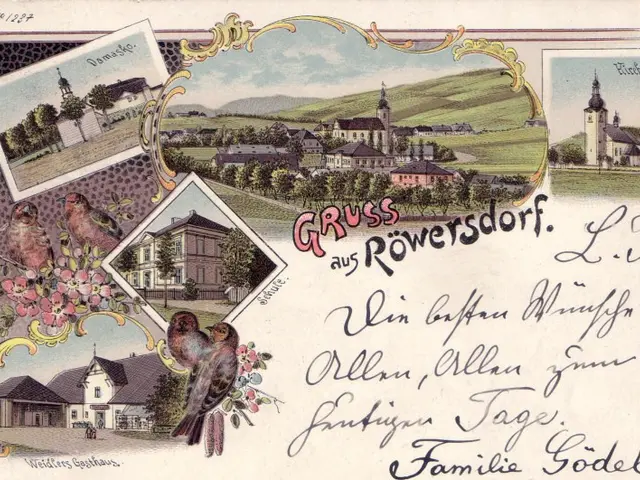 1237
Damasko.
GRUSS
aus Röwersdorf.
Schule.
Weidlers Gasthaus.
L.
Die besten Wünsche
Allen, Allen zum
heutigen Tage.
Familie Gödel